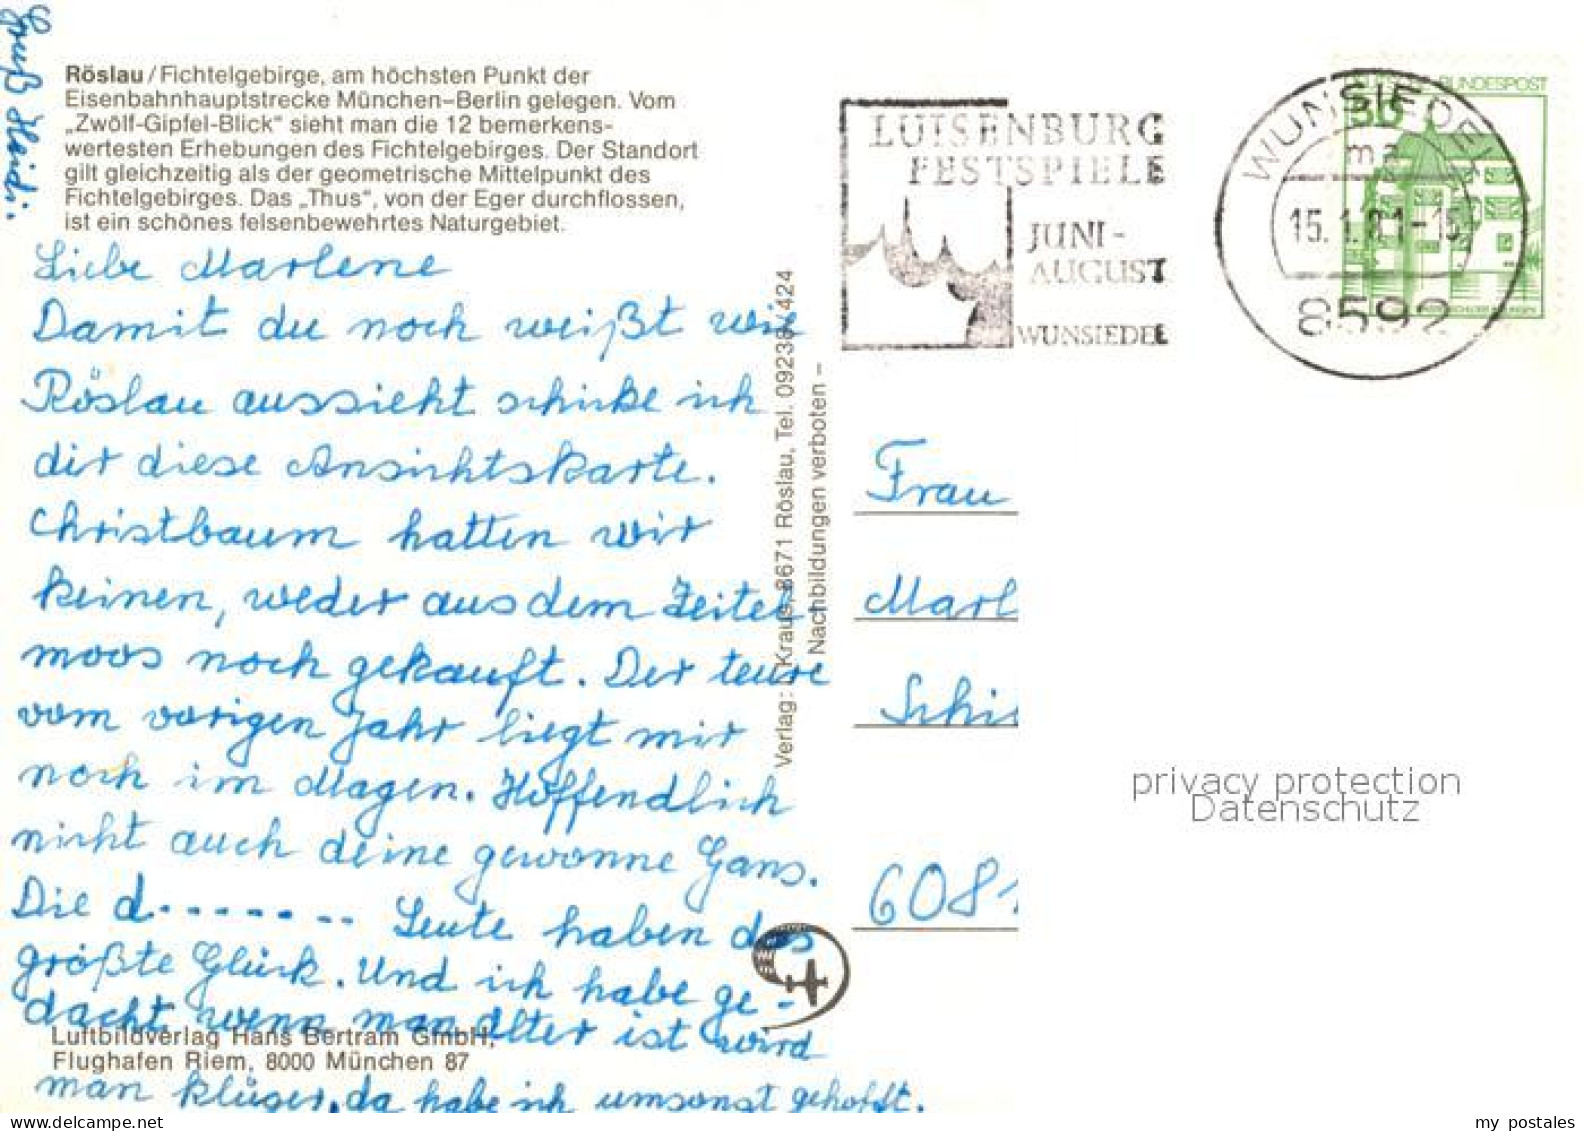 Gruß Heidi.
Röslau / Fichtelgebirge, am höchsten Punkt der
Eisenbahnhauptstrecke München–Berlin gelegen. Vom
„Zwölf-Gipfel-Blick“ sieht man die 12 bemerkens-
wertesten Erhebungen des Fichtelgebirges. Der Standort
gilt gleichzeitig als der geometrische Mittelpunkt des
Fichtelgebirges. Das „Thus“, von der Eger durchflossen,
ist ein schönes felsenbewehrtes Naturgebiet.
Liebe Marlene
Damit du noch weißt wie
Röslau aussieht schicke ich
dir diese Ansichtskarte.
Christbaum hatten wir
keinen, weder aus dem Zeitel
moos noch gekauft. Der teure
vom vorigen Jahr liegt mir
noch im Magen. Hoffendlich
nicht auch deine gewonne Gans.
Die d....... Leute haben das
größte Glück. Und ich habe ge-
dacht wenn man älter ist wird
man klüger, da habe ich umsonst gehofft.
Luftbildverlag Hans Bertram GmbH,
Flughafen Riem, 8000 München 87
Verlag: Kraus, 8671 Röslau, Tel. 09238/424
Nachbildungen verboten –
LUISENBURG
FESTSPIELE
JUNI-
AUGUST
WUNSIEDEL
WUNSIEDEL
ma
15.1.81-15
8592
BUNDESPOST
50
Frau
Marl
Schi
6081
privacy protection
Datenschutz
my postales